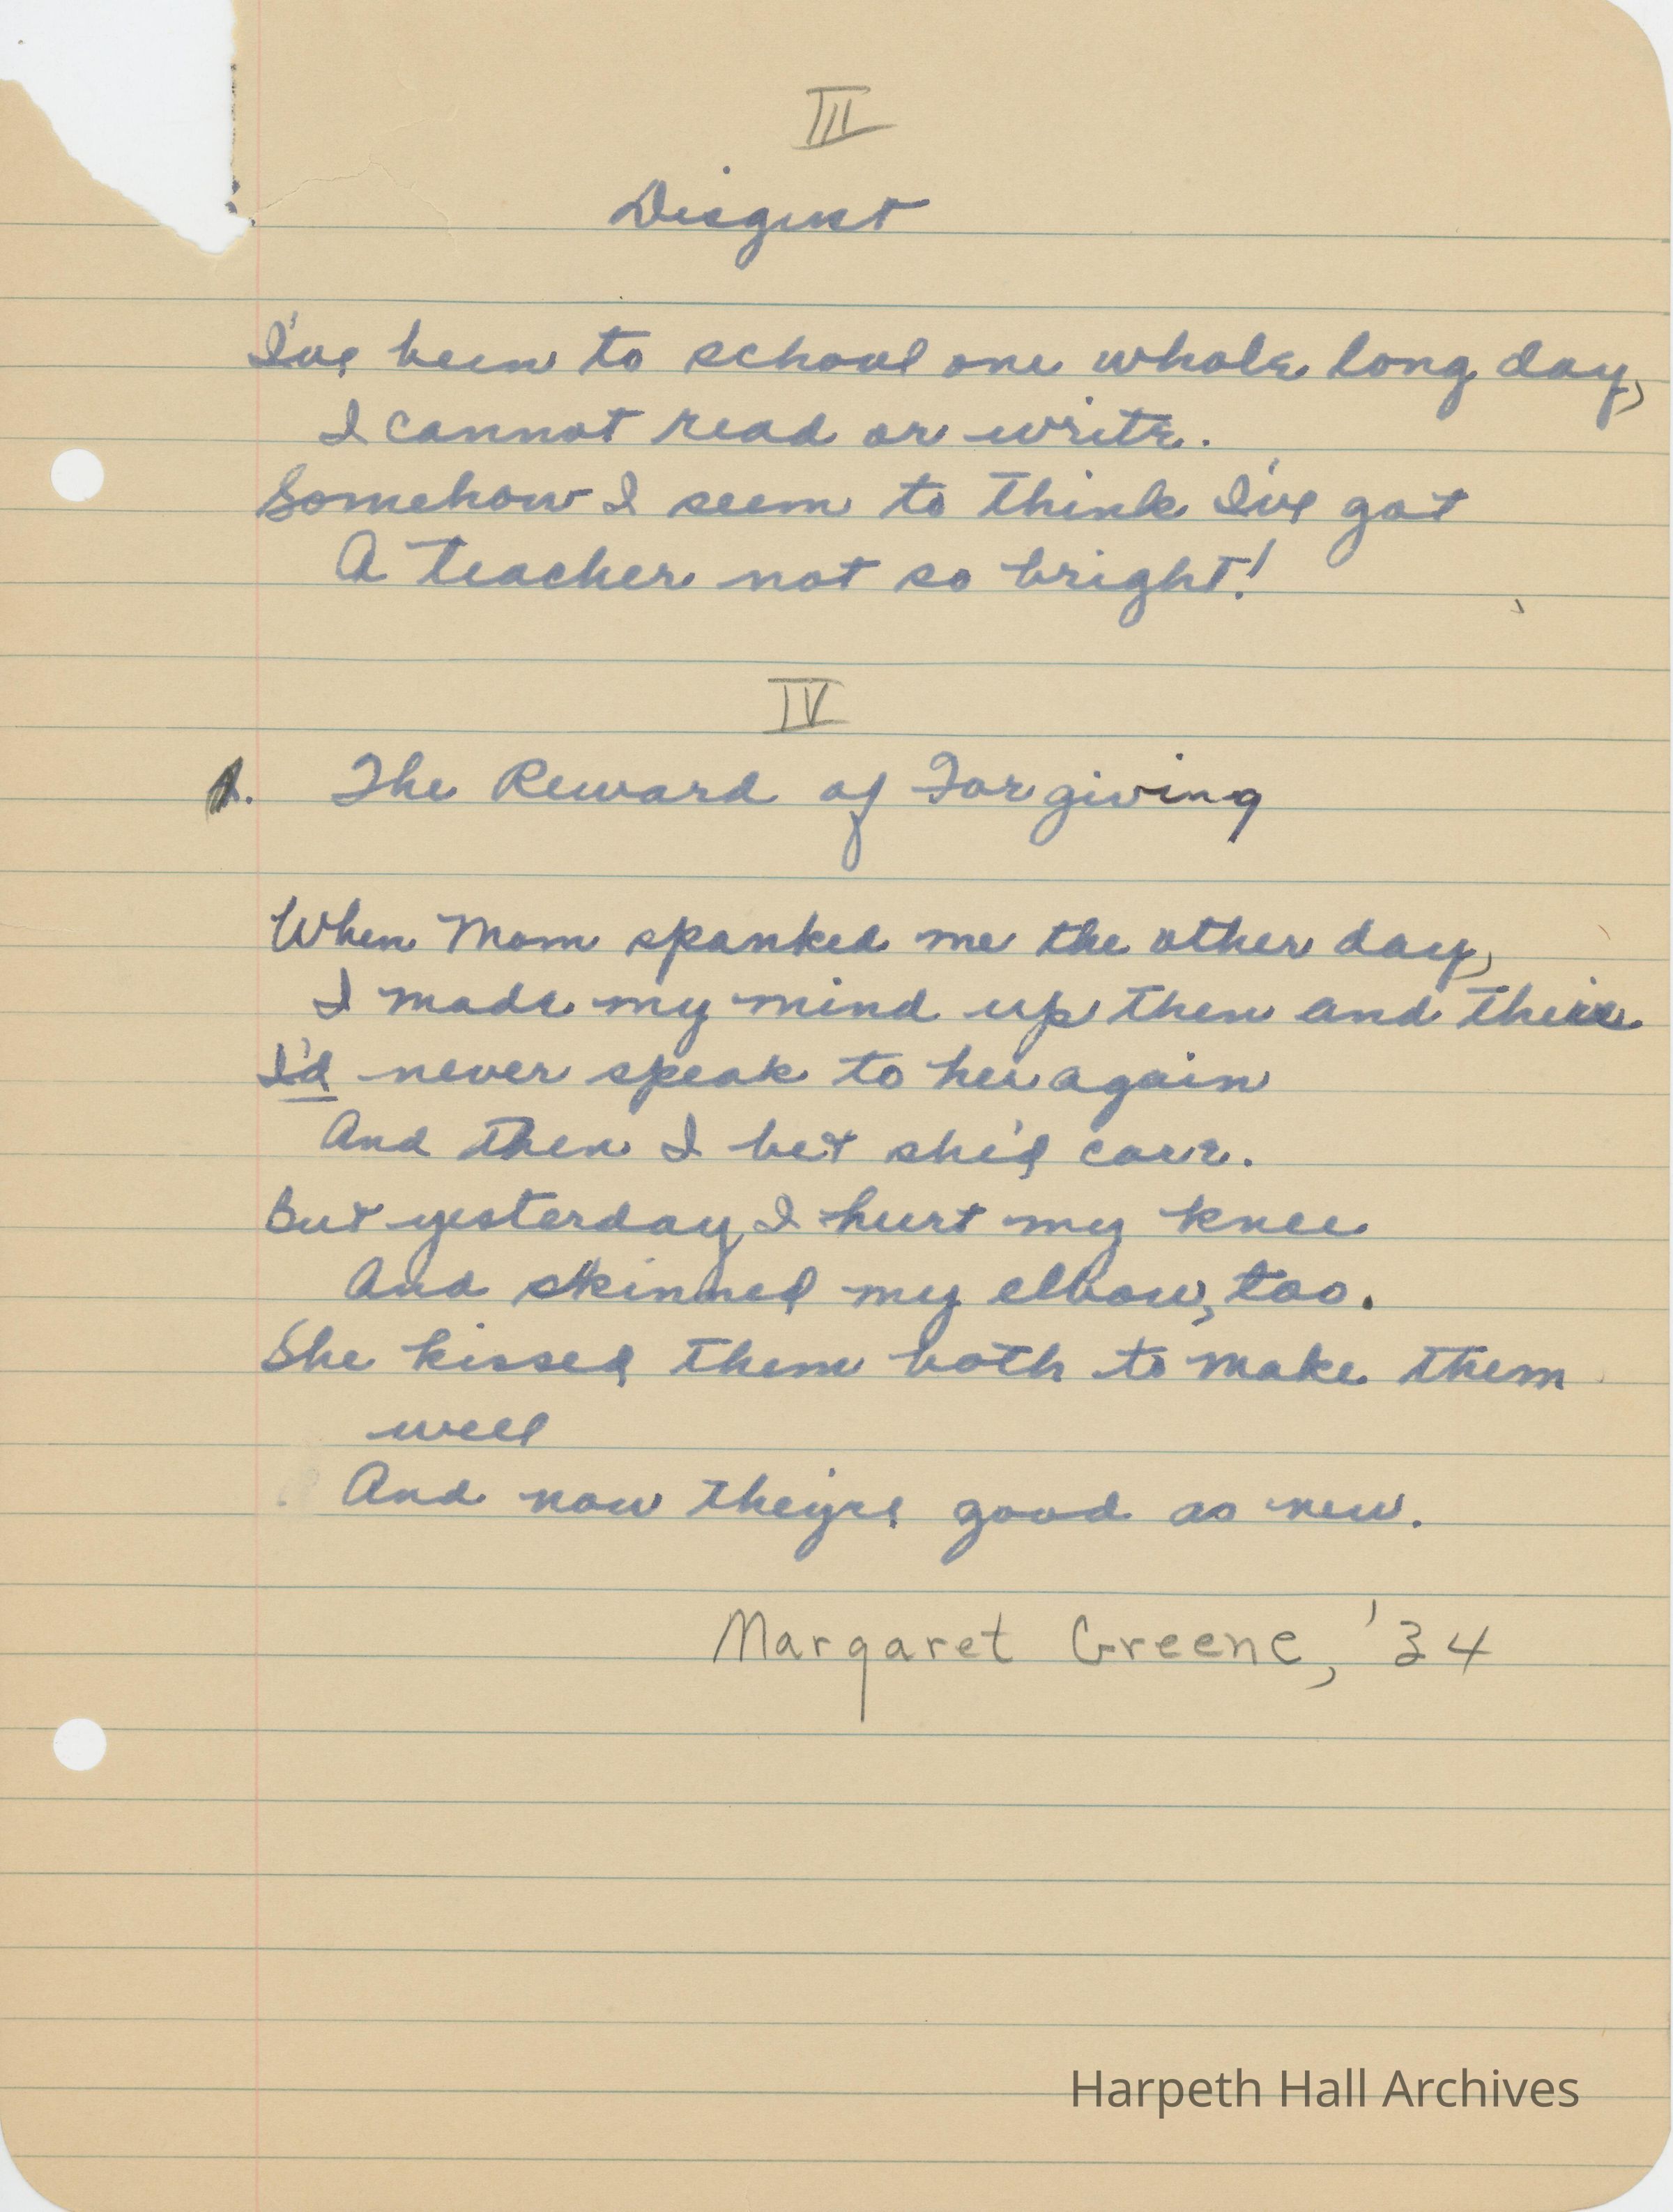 III
Disgust
I've been to school one whole long day,
I cannot read or write.
Somehow I seem to think I've got
A teacher not so bright!
IV
The Reward of Forgiving
When Mom spanked me the other day,
I made my mind up then and there
I'd never speak to her again
And then I bet she'd care.
But yesterday I hurt my knee
And skinned my elbow, too.
She kissed them both to make them
well
And now they're good as new.
Margaret Greene, '34
Harpeth Hall Archives